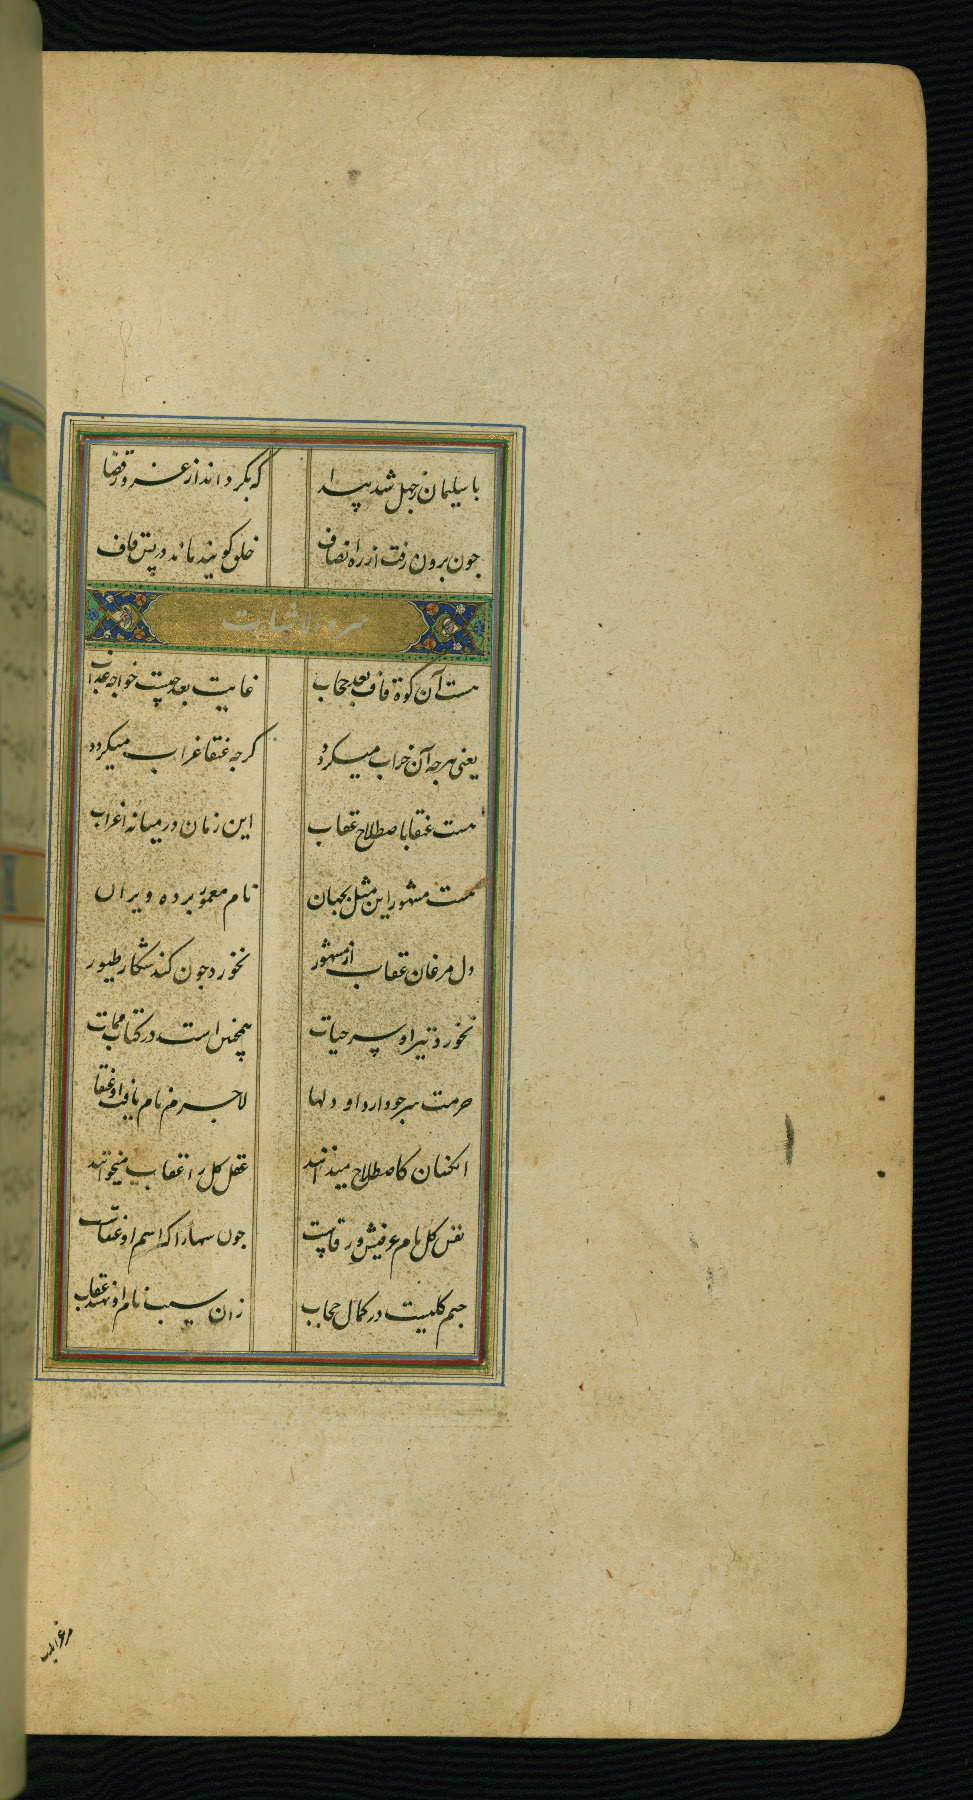 با سلیمان ز جهل شد پیدا که بگرداند از غرور قضا
چون برون رفت از ره انصاف خلق گویند ماند در پس قاف
هست آن کوه قاف بعد حجاب غایت بعد چیست خواجه عذاب
یعنی هرچه آن خراب میگردد گرچه عنقا غراب میگردد
هست عنقا باصطلاح عقاب این زمان در میانه اعراب
هست مشهور این مثل بجهان نام معمور برده ویران
دل مرغان عقاب از مشهور نخورد چون کند شکار طیور
نخورد تیر او سر حیات همچنین است در کتاب
حرمت هر چو دارد او دلها لاجرم نام یافت او عنقا
انکسان کاصطلاح میدانند عقل کل را عقاب میخوانند
نفس کل نام عرفیش ورقاست چون سها را که اسم او عنقاست
جسم کلیست در کمال حجاب زان سبب نام او نهند عقاب